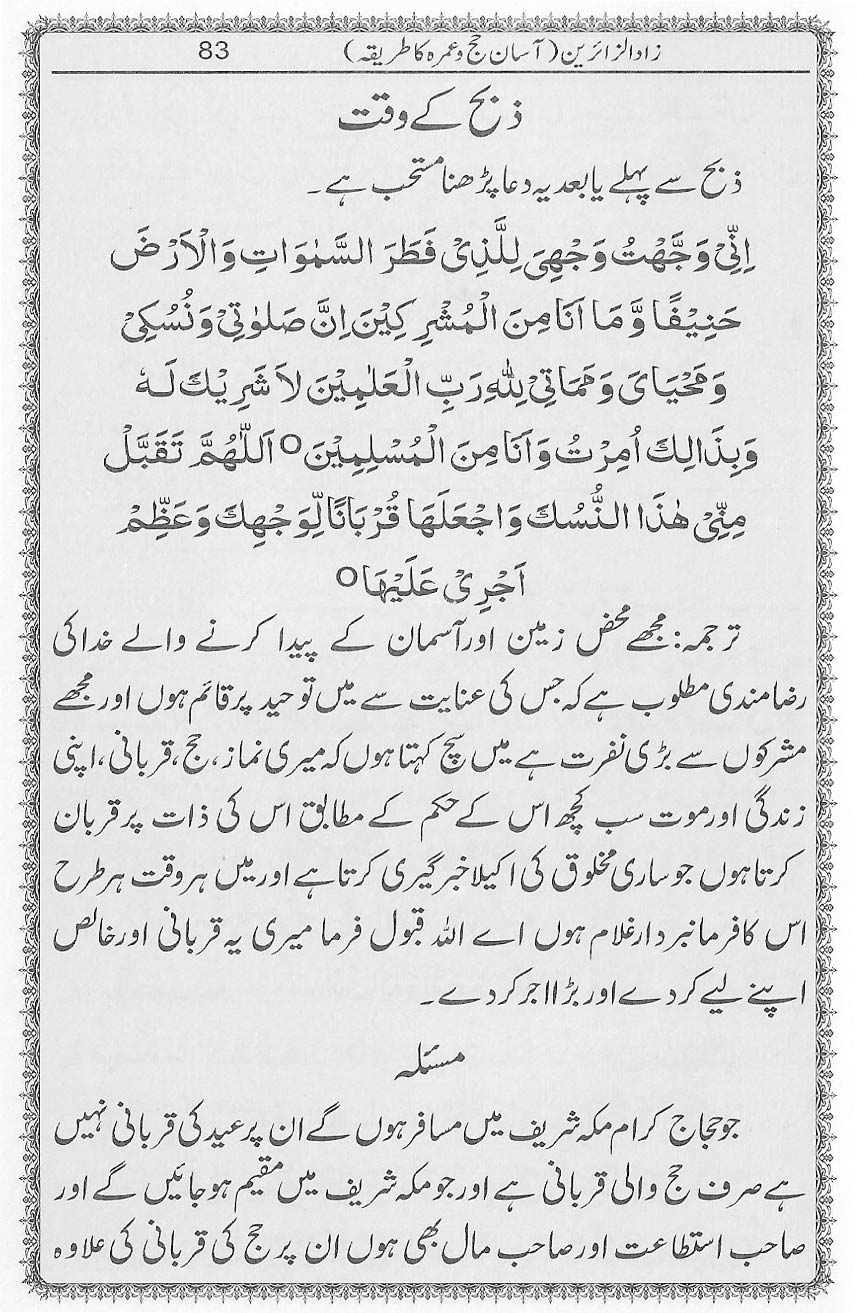 زاد الزائرین (آسان حج و عمرہ کا طریقہ) 83
ذبح کے وقت
ذبح سے پہلے یا بعد یہ دعا پڑھنا مستحب ہے۔
اِنِّیْ وَجَّهْتُ وَجْهِیَ لِلَّذِیْ فَطَرَ السَّمٰوَاتِ وَالْاَرْضَ
حَنِیْفًا وَّمَا اَنَا مِنَ الْمُشْرِکِیْنَ اِنَّ صَلٰوتِیْ وَنُسُکِیْ
وَمَحْیَایَ وَمَمَاتِیْ لِلّٰهِ رَبِّ الْعَلٰمِیْنَ لَا شَرِیْكَ لَهٗ
وَبِذَالِكَ اُمِرْتُ وَاَنَا مِنَ الْمُسْلِمِیْنَ ○ اَللّٰهُمَّ تَقَبَّلْ
مِنِّیْ هٰذَا النُّسُكَ وَاجْعَلَهَا قُرْبَانًا لِّوَجْهِكَ وَعَظِّمْ
اَجْرِیْ عَلَیْهَا ○
ترجمہ: مجھے محض زمین اور آسمان کے پیدا کرنے والے خدا کی
رضامندی مطلوب ہے کہ جس کی عنایت سے میں توحید پر قائم ہوں اور مجھے
مشرکوں سے بڑی نفرت ہے میں سچ کہتا ہوں کہ میری نماز، حج، قربانی، اپنی
زندگی اور موت سب کچھ اس کے حکم کے مطابق اس کی ذات پر قربان
کرتا ہوں جو ساری مخلوق کی اکیلا خبر گیری کرتا ہے اور میں ہر وقت ہر طرح
اس کا فرمانبردار غلام ہوں اے اللہ قبول فرما میری یہ قربانی اور خالص
اپنے لیے کر دے اور بڑا اجر کر دے۔
مسئلہ
جو حجاج کرام مکہ شریف میں مسافر ہوں گے ان پر عید کی قربانی نہیں
ہے صرف حج والی قربانی ہے اور جو مکہ شریف میں مقیم ہو جائیں گے اور
صاحب استطاعت اور صاحب مال بھی ہوں ان پر حج کی قربانی کی علاوہ